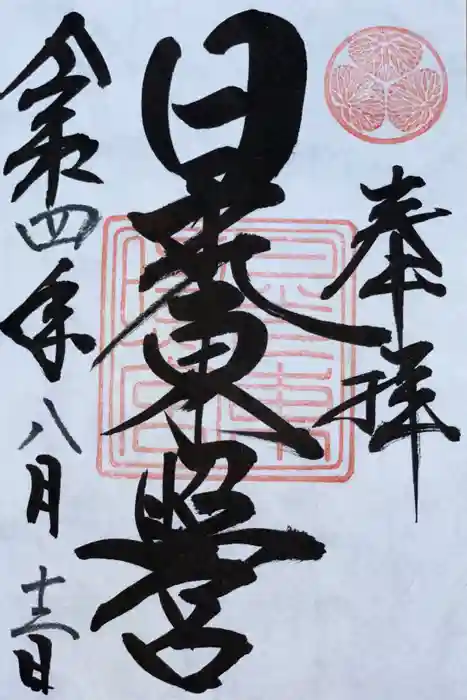 奉拝
日光東照宮
令和四年八月日